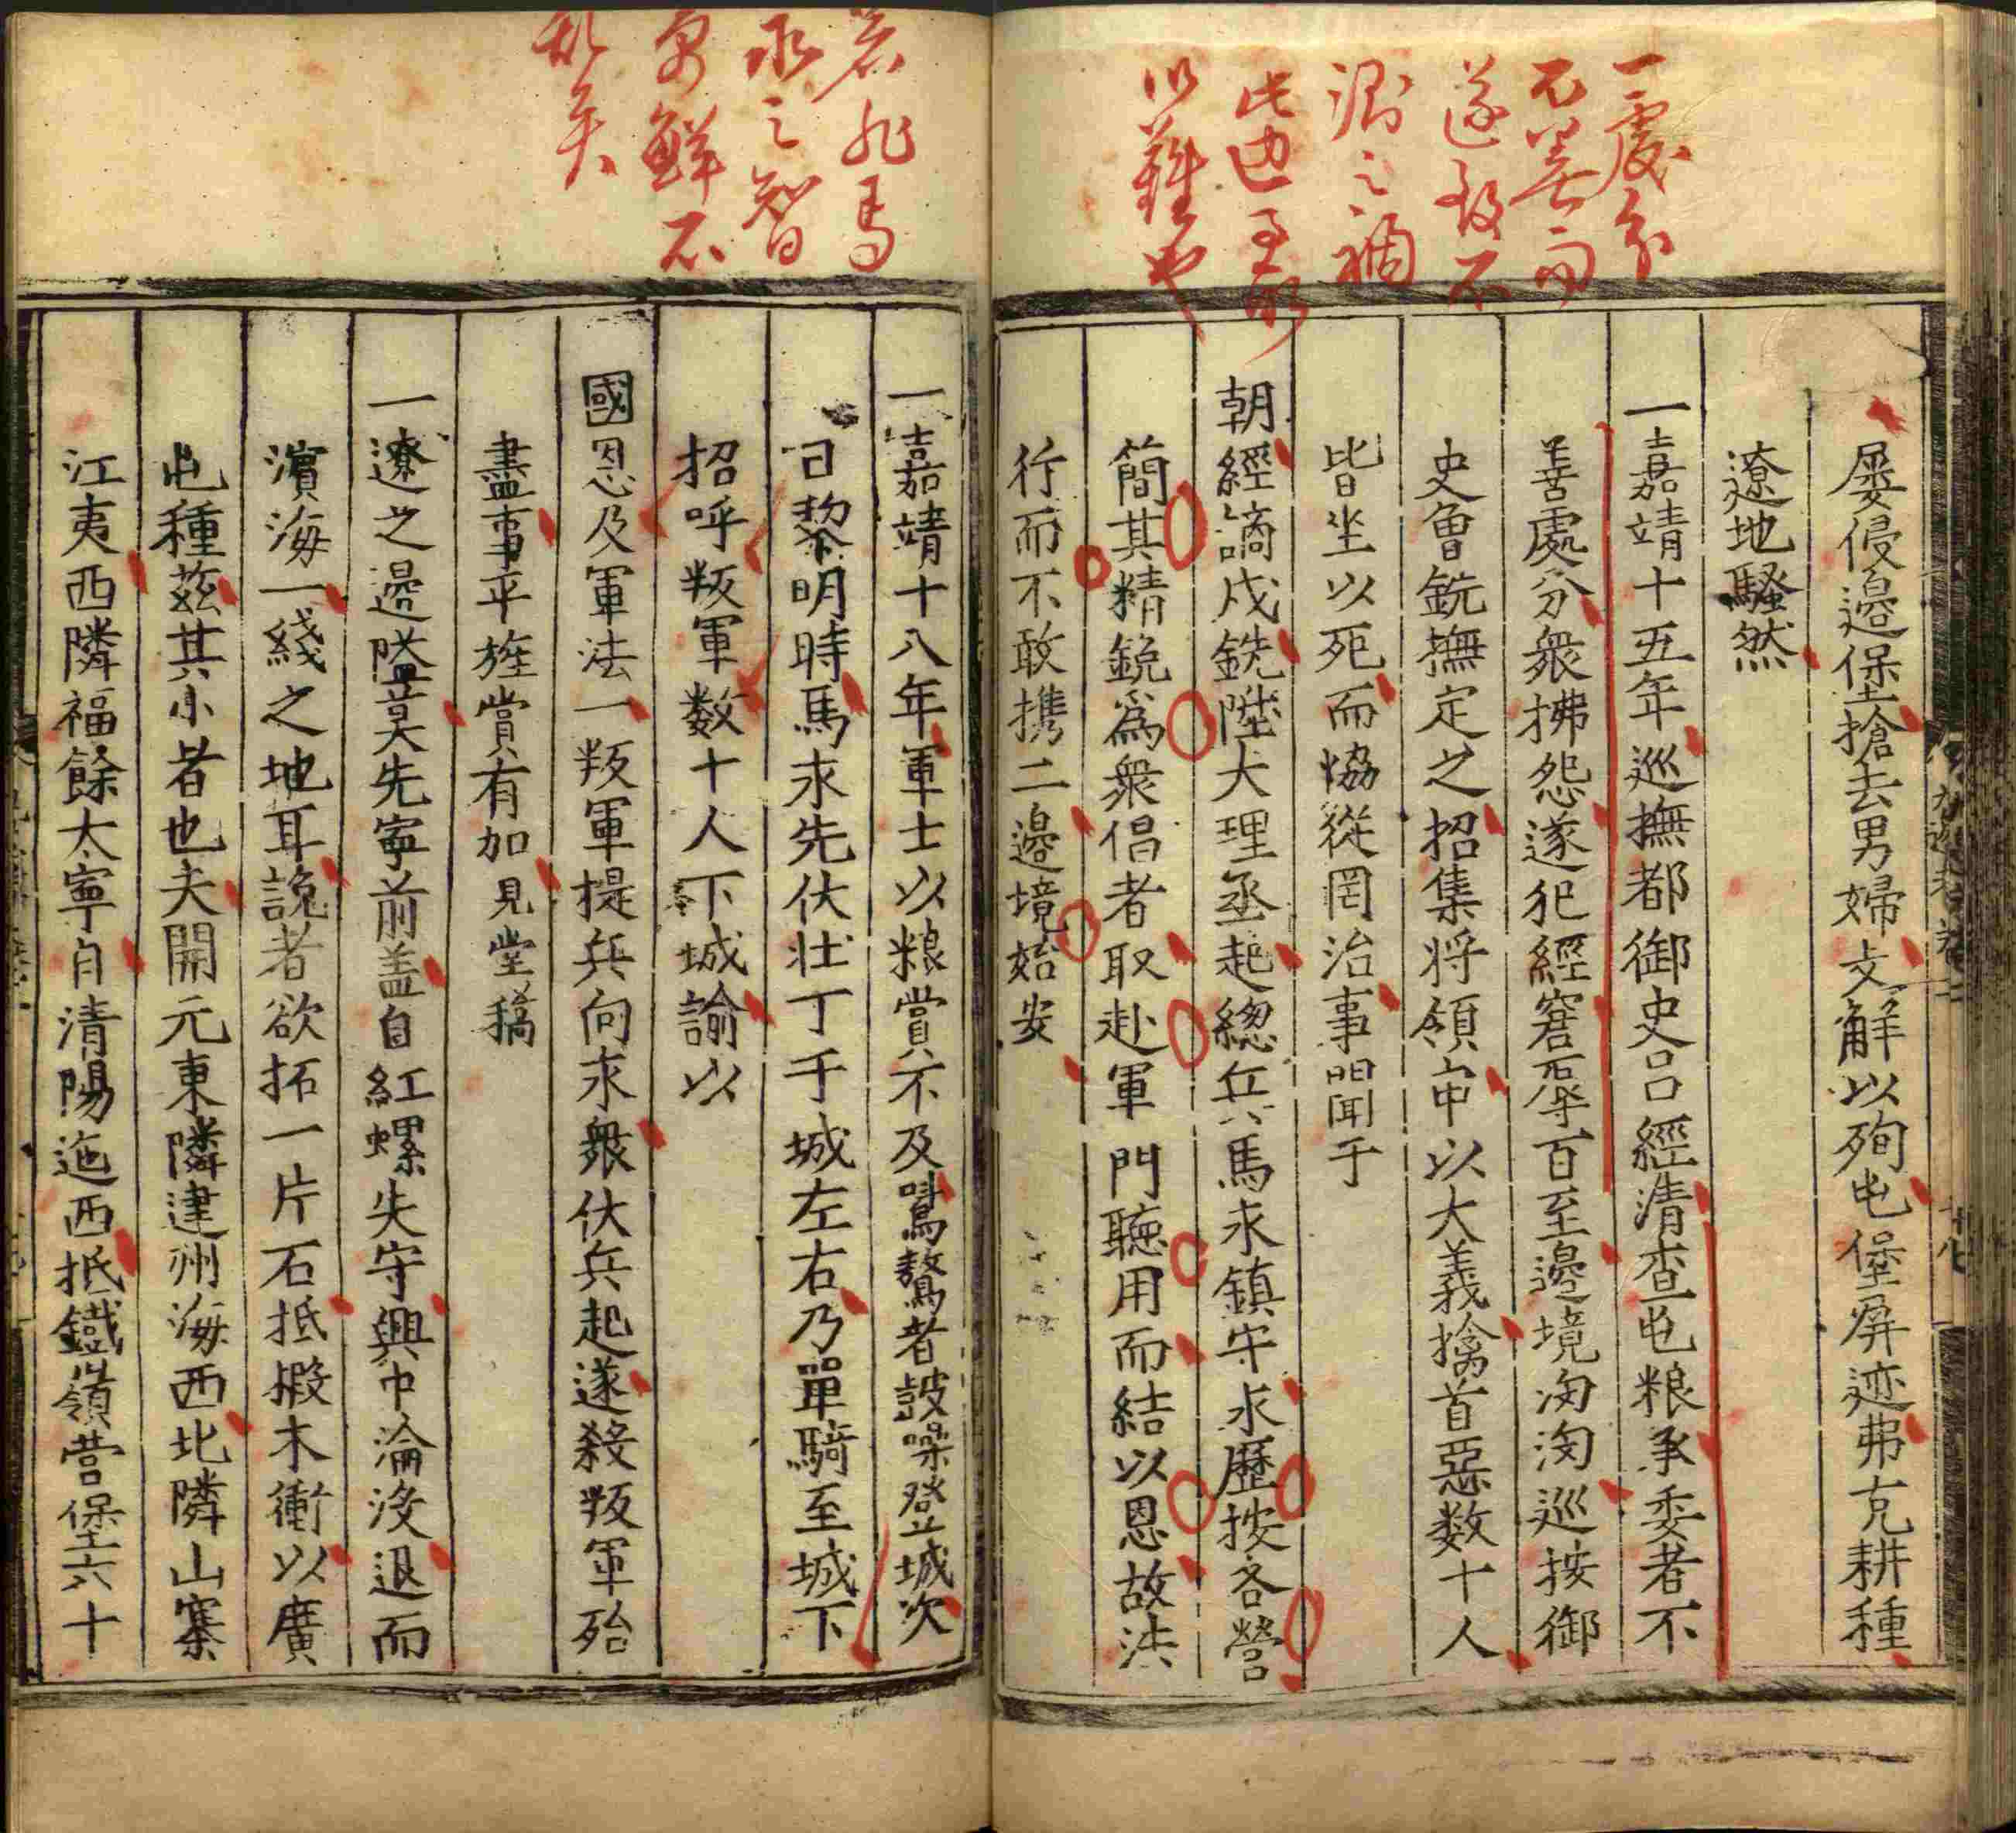 一處分
不善而
遂致不
測之禍
此边事所
以難也
屡侵邊堡搶去男婦支解以殉屯堡屏迹弗克耕種
遼地騷然
一嘉靖十五年巡撫都御史吕經清查屯粮承委者不
善處分衆拂怨遂犯經窘辱百至邊境洶洶巡按御
史曾銑撫定之招集将領申以大義擒首惡数十人
皆坐以死而恊從罔治事聞于
朝經謫戍銑陞大理丞起緫兵馬永鎮守永歷按各營
簡其精銳爲衆倡者取赴軍門聽用而結以恩故法
行而不敢携二邊境始安
若非馬
永之智
勇鮮不
乱矣
一嘉靖十八年軍士以粮賞不及時驕驁者鼓噪登城次
日黎明時馬永先伏壮丁于城左右乃單騎至城下
招呼叛軍数十人下城諭以
國恩及軍法一叛軍提兵向永衆伏兵起遂殺叛軍殆
盡事平旌賞有加見堂稿
一遼之邊隘莫先寧前盖自紅螺失守興中淪没退而
濱海一綫之地耳說者欲拓一片石抵椴木衝以廣
屯種兹其小者也夫開元東隣建州海西北隣山寨
江夷西隣福餘大寧自清陽迤西抵鐵嶺營堡六十